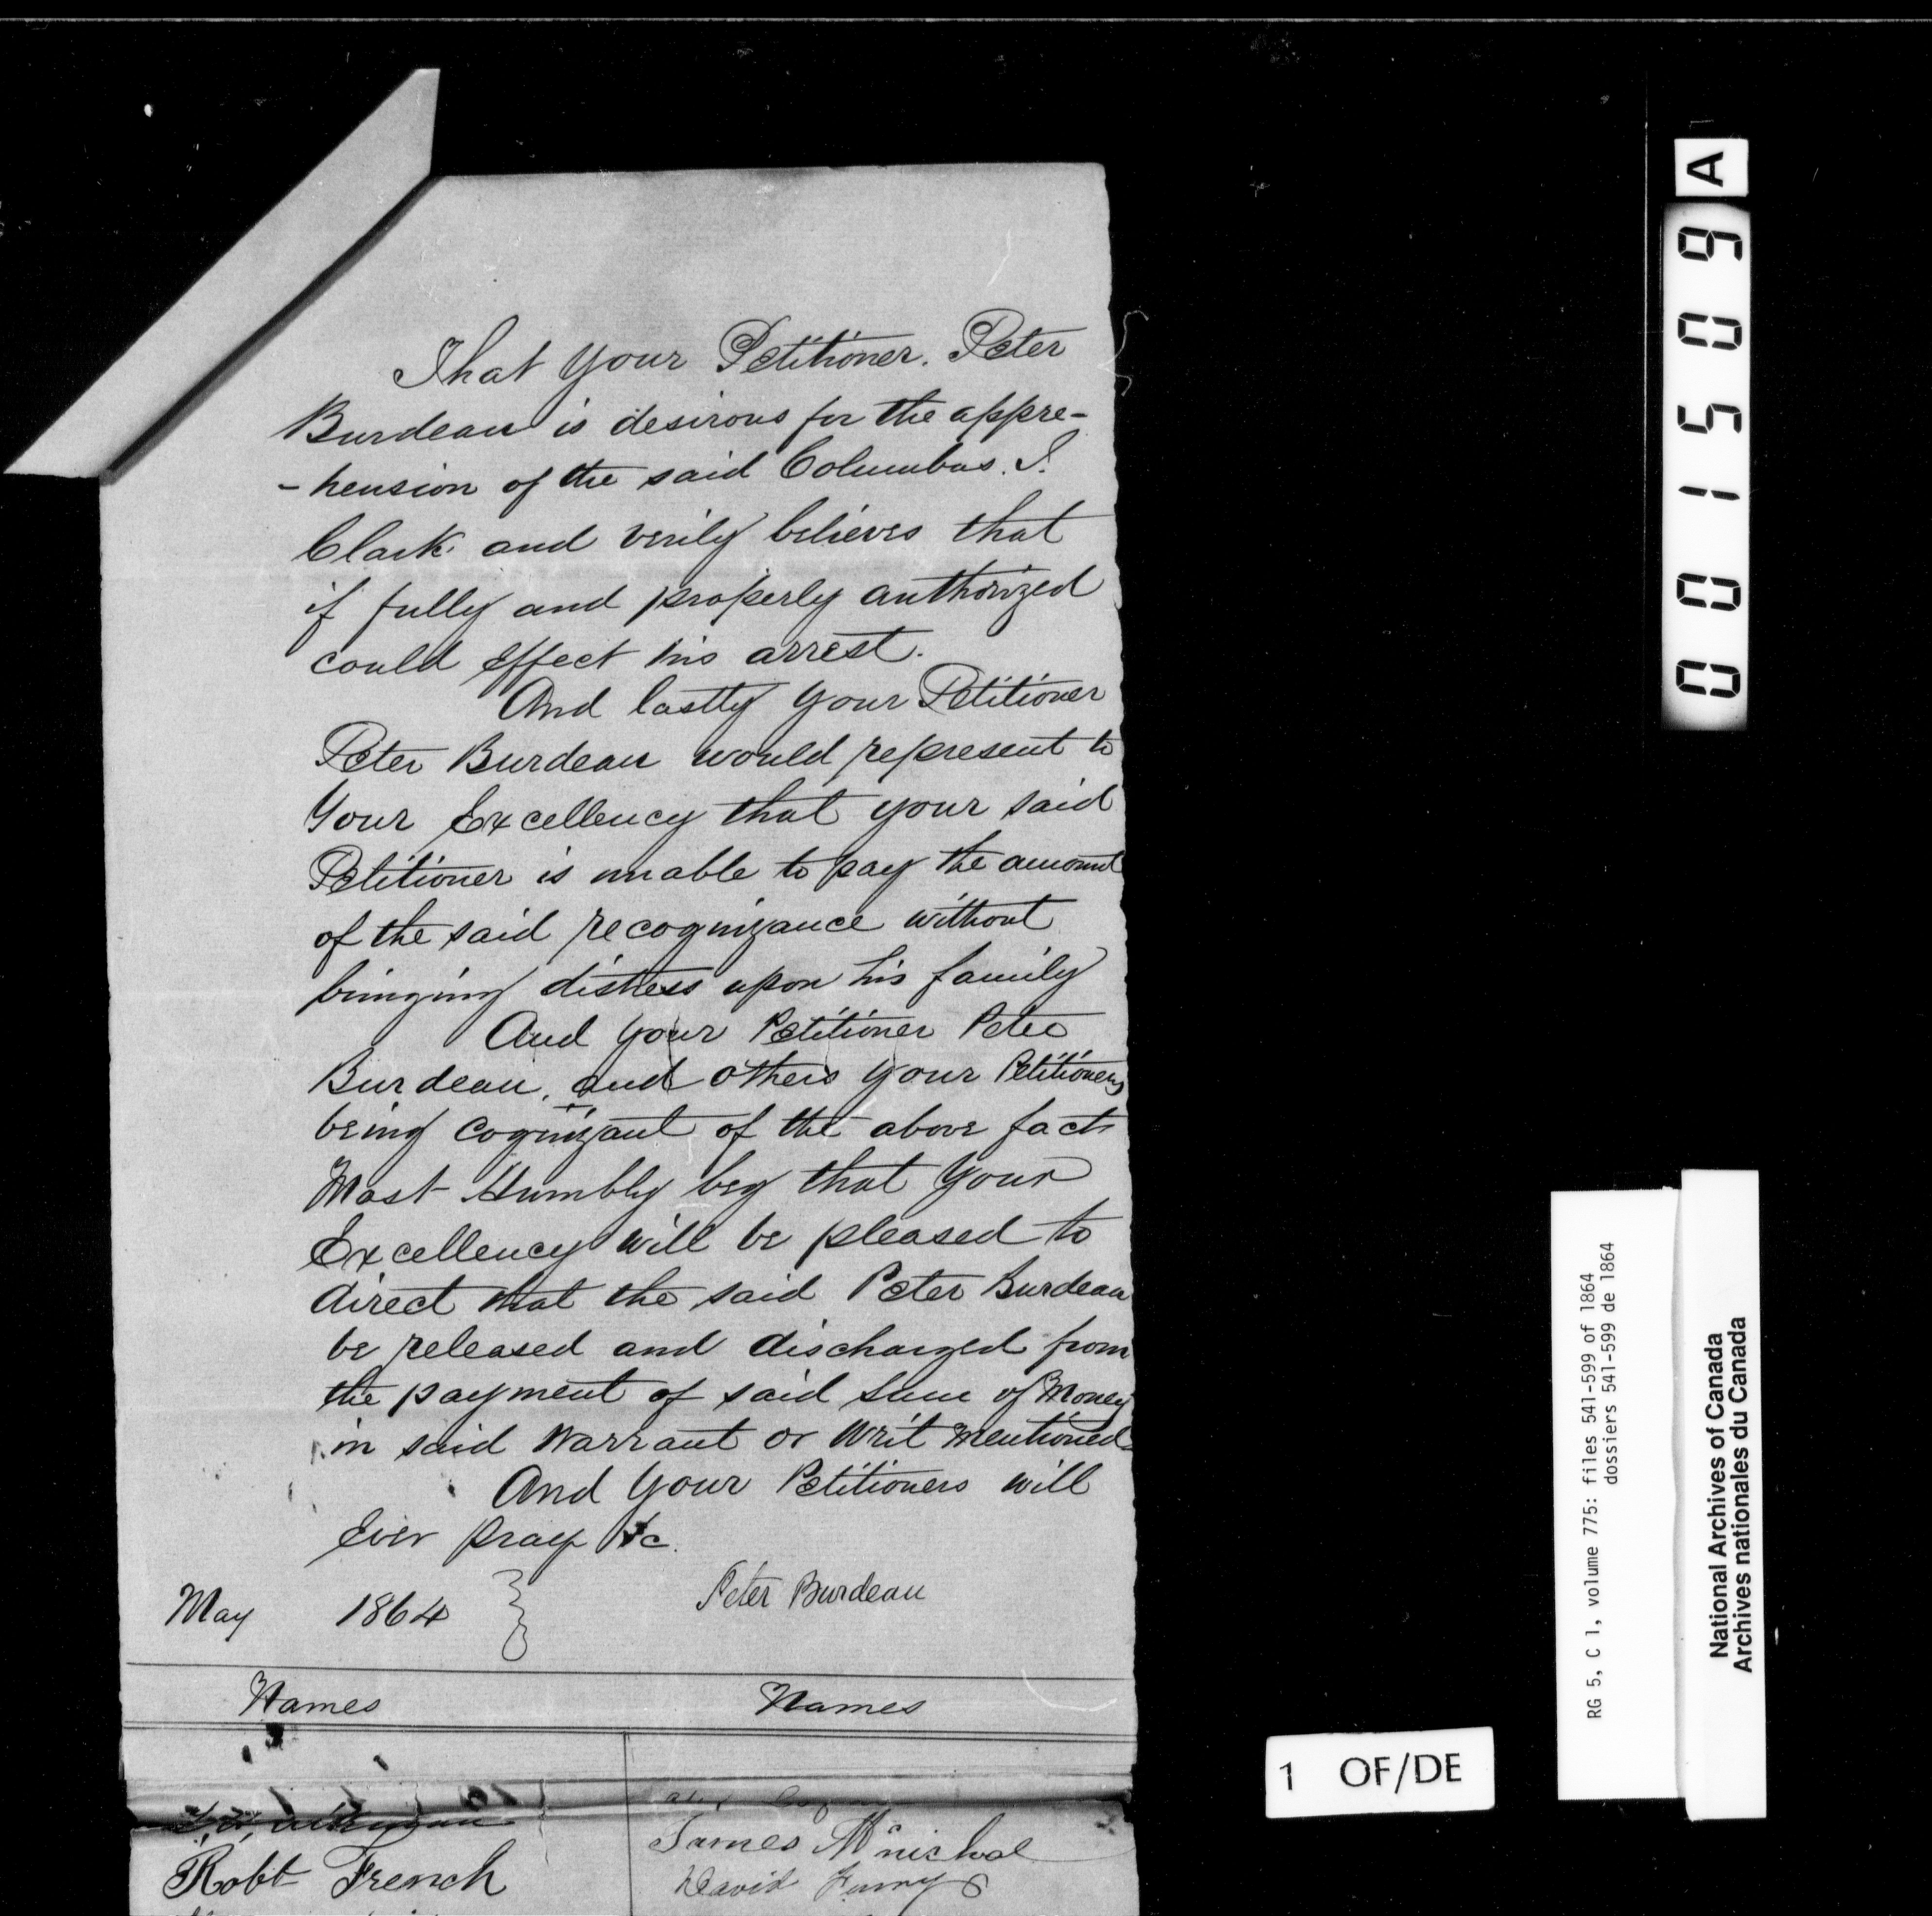 That Your Petitioner. Peter
Burdeau is desirous for the appre-
-hension of the said Columbus. I.
Clark and verily believes that
if fully and properly authorized
could effect his arrest.
And lastly Your Petitioner
Peter Burdeau would represent to
Your Excellency that your said
Petitioner is unable to pay the amount
of the said recognizance without
bringing distress upon his family
And Your Petitioner Peter
Burdeau, and others your Petitioners
being cognizant of the above facts
Most Humbly beg that Your
Excellency will be pleased to
direct that the said Peter Burdeau
be released and discharged from
the payment of said sum of Money
in said Warrant or Writ mentioned
And Your Petitioners will
Ever pray &c.
May 1864
Peter Burdeau
Names Names
Robt French
James McNichol
David
001509 A
RG 5, C 1, volume 775: files 541-599 of 1864
dossiers 541-599 de 1864
National Archives of Canada
Archives nationales du Canada
1 OF/DE